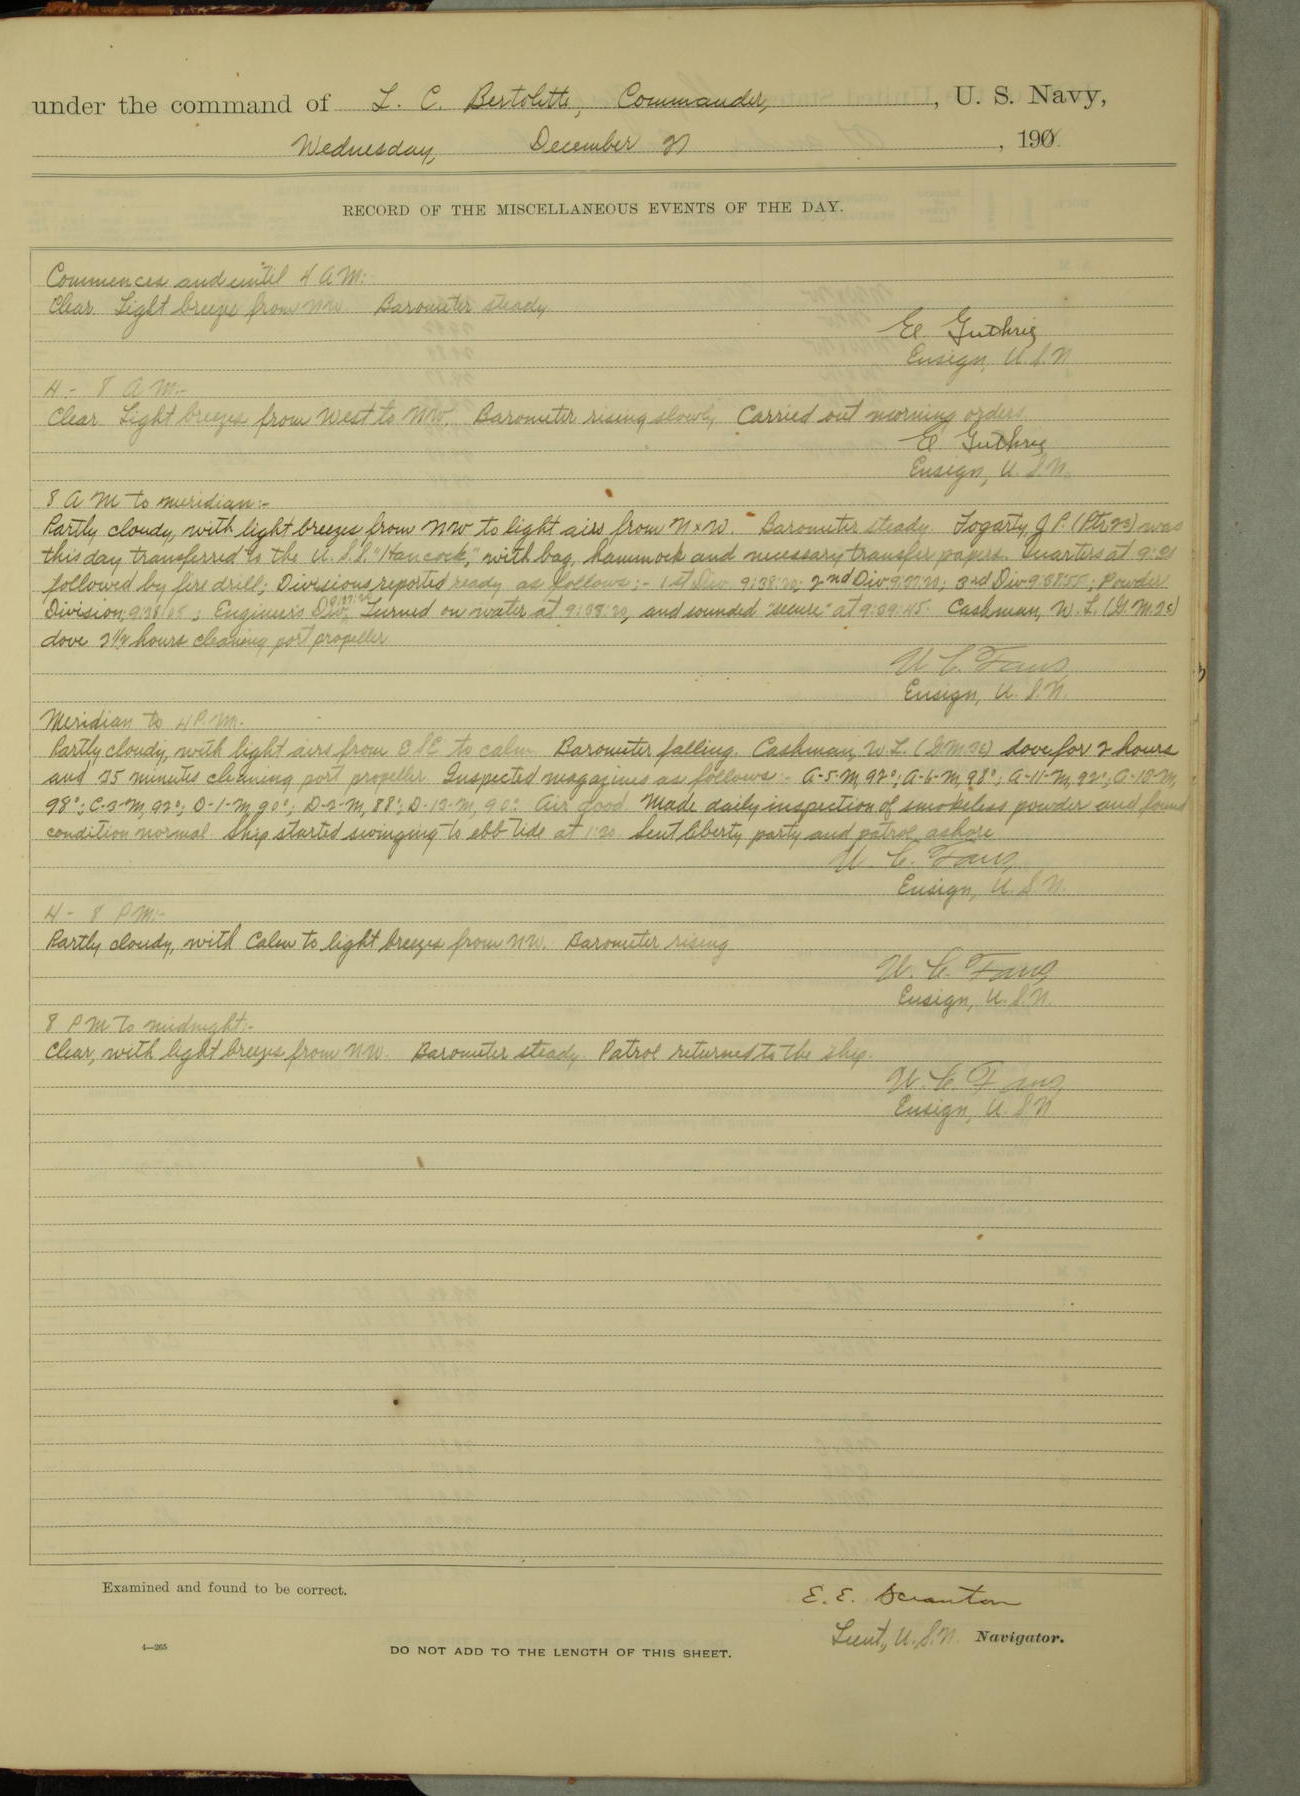 under the command of L. C. Bertolette, Commander, U. S. Navy,
Wednesday, December 21, 190
RECORD OF THE MISCELLANEOUS EVENTS OF THE DAY.
Commences and until 4 A M:-
Clear. Light breeze from NW. Barometer steady.
E Guthrie
Ensign, U. S. N.
4 - 8 A M:-
Clear. Light breezes from West to NW. Barometer rising slowly. Carried out morning orders.
E Guthrie
Ensign, U. S. N.
8 A M to meridian:-
Partly cloudy, with light breezes from NW to light airs from NxW. Barometer steady. Fogarty, J. P. (Ptr 2c) was
this day transferred to the U. S. S. "Hancock," with bag, hammock and necessary transfer papers. Quarters at
followed by fire drill; Divisions reported ready as follows:- 1st Div. 2nd Div 3rd Div Powder
Division, Engineer's Div, Turned on water at and sounded "secure" at Cashman, W. L. (G.M. 2c)
dove 2 1/2 hours cleaning port propeller
Ensign, U. S. N.
Meridian to 4 P. M.-
Partly cloudy, with light airs from ESE to calm. Barometer falling. Cashman, W. L. (G M 2c) dove for 2 hours
and 25 minutes cleaning port propeller. Inspected magazines as follows:- A-5-M, 92°; A-6-M, 98°; A-11-M, 92°;
98°; C-2-M, 92°; D-1-M, 90°; D-2-M, 88°; D-12-M, 90°. Air good. Made daily inspection of smokeless powder and found
condition normal. Ship started swinging to ebb tide at 1:20. Sent liberty party and patrol ashore
Ensign, U. S. N.
4 - 8 P M:-
Partly cloudy, with Calm to light breezes from NW. Barometer rising
Ensign, U. S. N.
8 P M to midnight:-
Clear, with light breezes from NW. Barometer steady. Patrol returned to the ship.
Ensign, U. S. N.
Examined and found to be correct.
E. E. Scranton
Lieut, U. S. N. Navigator.
4—265
DO NOT ADD TO THE LENGTH OF THIS SHEET.